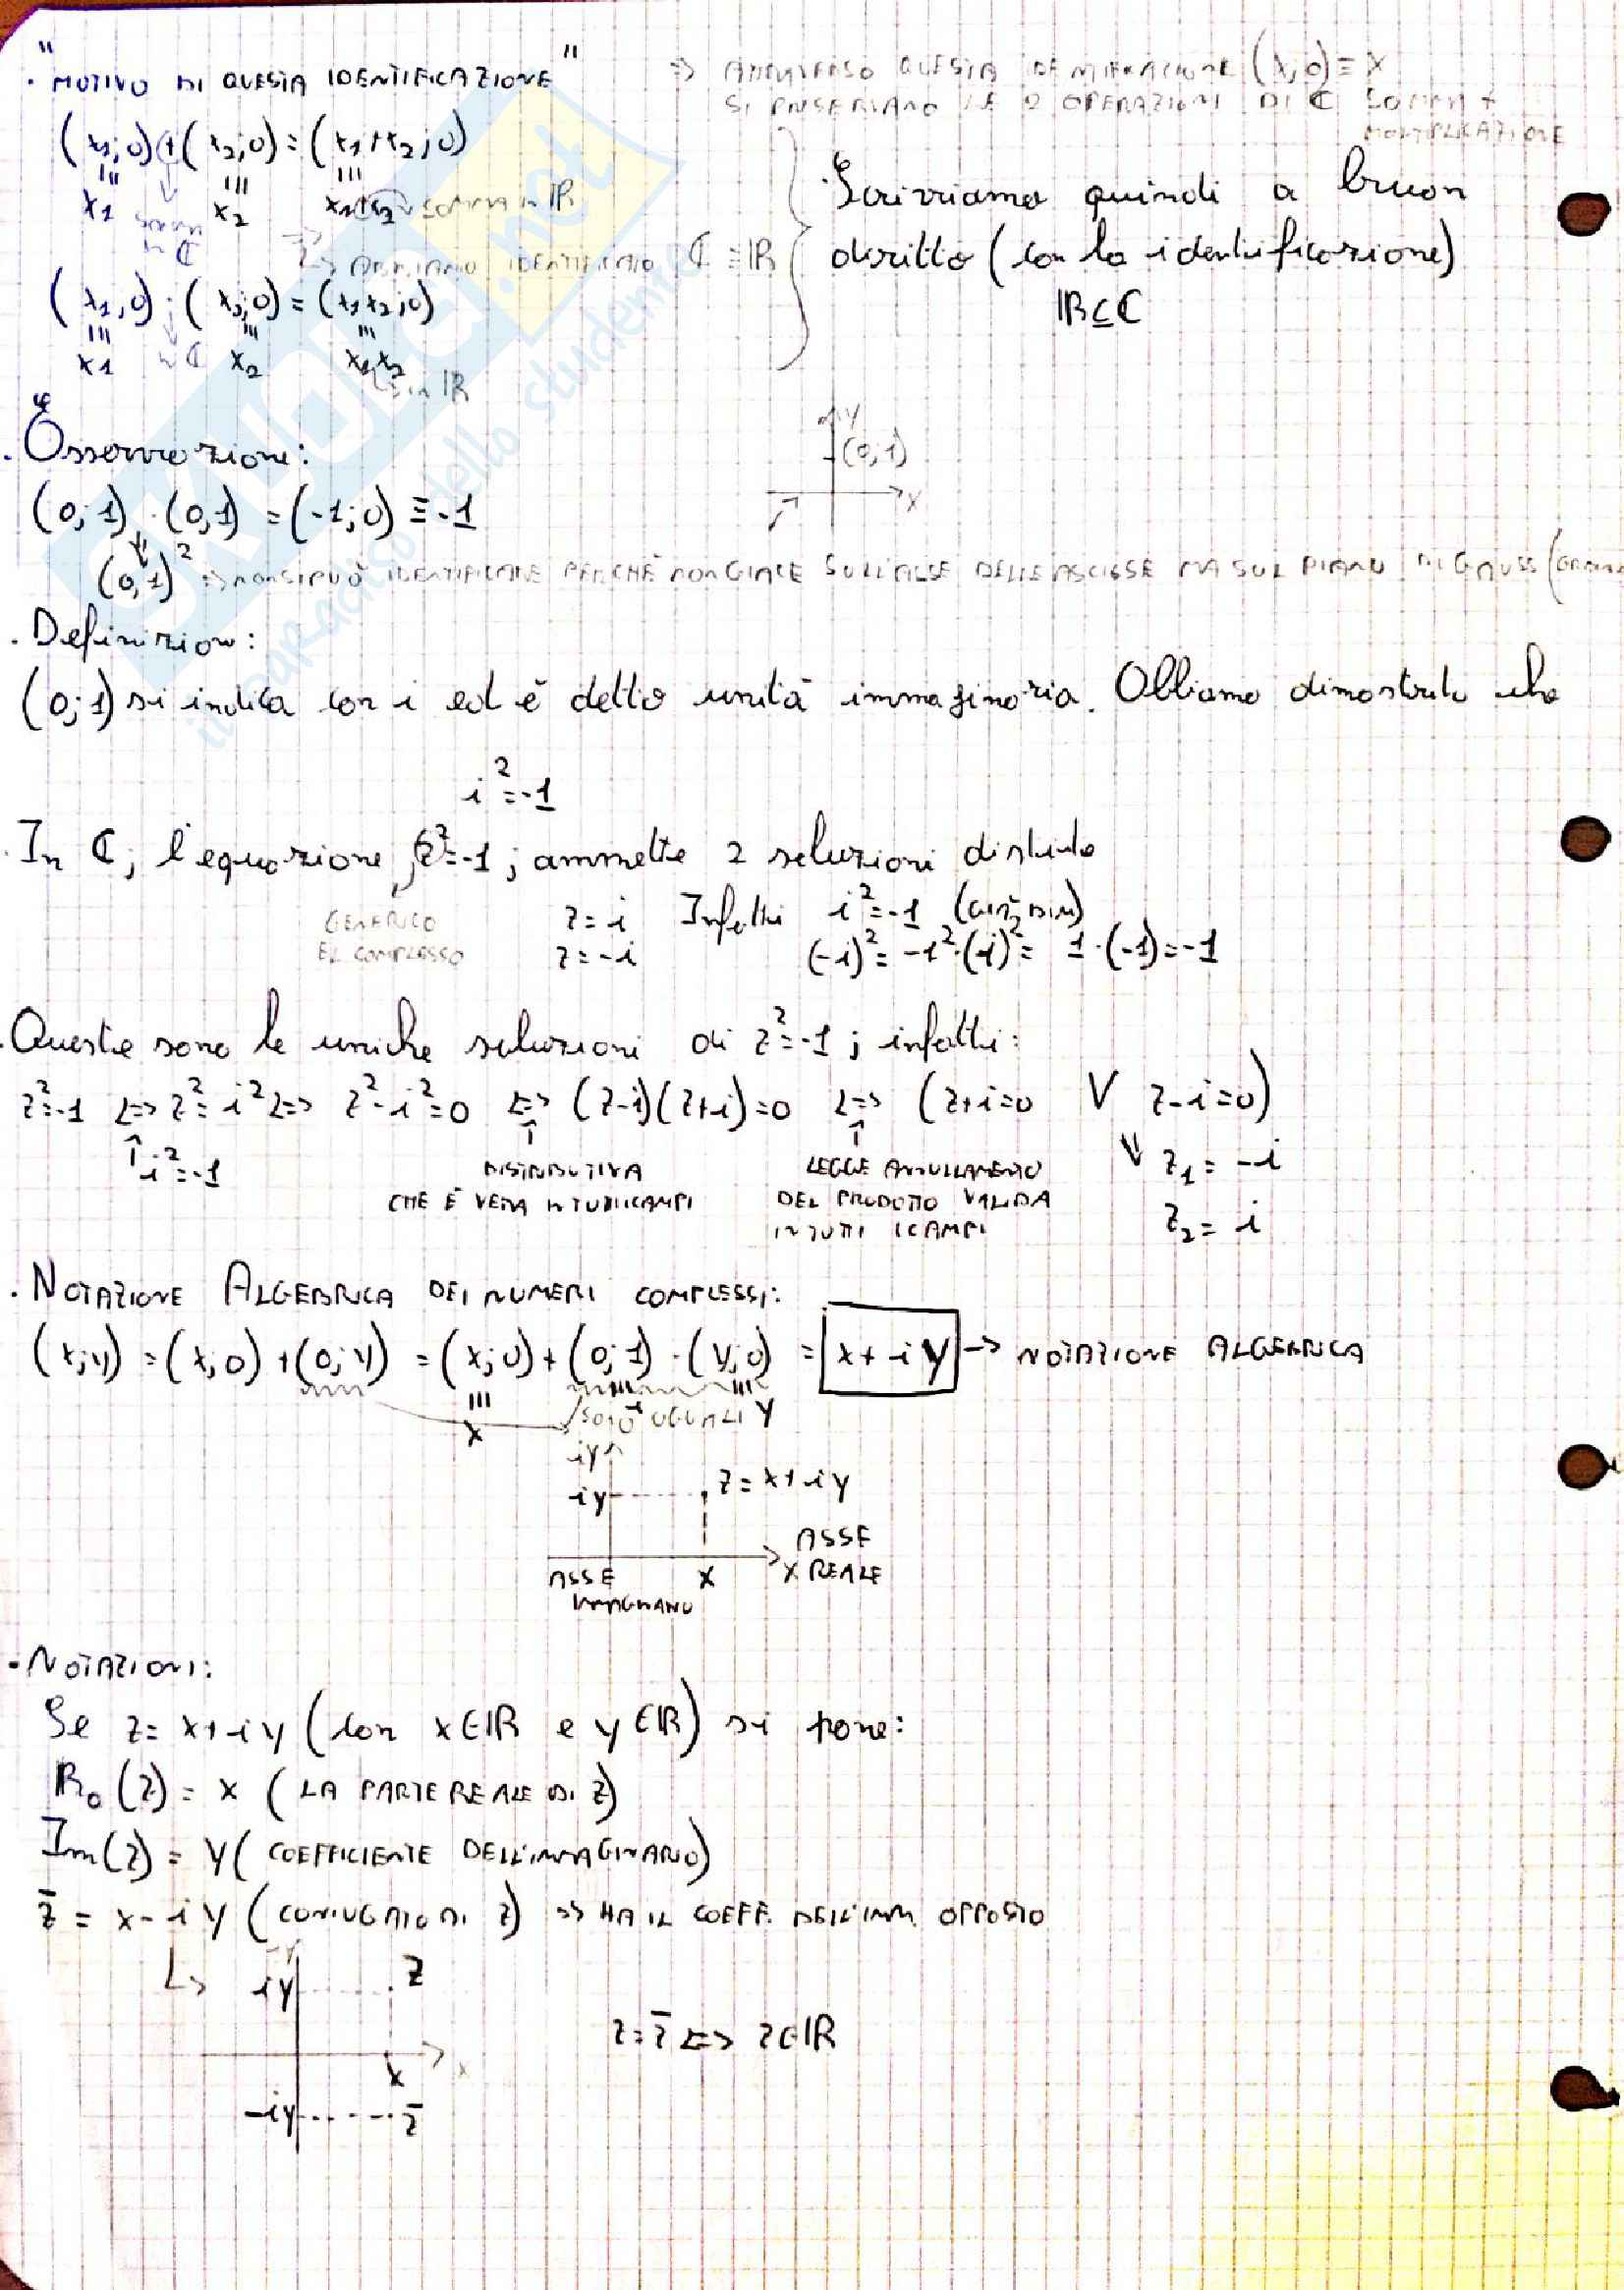 " MOTIVO DI QUESTA IDENTIFICAZIONE "
=> ATTRAVERSO QUESTA IDENTIFICAZIONE (x;0)≡X
SI PRESERVANO LE 2 OPERAZIONI DI ℂ SOMMA +
MOLTIPLICAZIONE
(x1;0)+(x2;0)=(x1+x2;0)
x1 x2 x1+x2 SOMMA IN ℝ
SOMMA IN ℂ
ABBIAMO IDENTIFICATO ℂ≡ℝ
(x1,0)·(x2;0)=(x1x2;0)
x1 IN ℂ x2 x1x2
in ℝ
Scriviamo quindi a buon
diritto (con la identificazione)
ℝ⊆ℂ
· Osservazione:
(0;1)·(0,1)=(-1;0)≡-1
(0,1)² => NON SI PUÒ IDENTIFICARE PERCHÈ NON GIACE SULL'ASSE DELLE ASCISSE MA SUL PIANO DI GAUSS
Y
(0;1)
X
· Definizion:
(0;1) si indica con i ed è detto unità immaginaria. Abbiamo dimostrato che
i²=-1
· In ℂ; l'equazione z²=-1; ammette 2 soluzioni distinte
GENERICO
EL COMPLESSO
z=i Infatti i²=-1 (già DIM)
z=-i (-i)²= -1²·(i)²= 1·(-1)=-1
· Queste sono le uniche soluzioni di z²=-1; infatti:
z²=-1 <=> z²=i² <=> z²-i²=0 <=> (z-i)(z+i)=0 <=> (z+i=0 V z-i=0)
i²=-1
DISTRIBUTIVA
CHE È VERA IN TUTTI I CAMPI
LEGGE ANNULLAMENTO
DEL PRODOTTO VALIDA
IN TUTTI I CAMPI
z1=-i
z2=i
· NOTAZIONE ALGEBRICA DEI NUMERI COMPLESSI:
(x;y)=(x;0)+(0;y)=(x;0)+(0;1)·(y;0)=x+iy -> NOTAZIONE ALGEBRICA
x SONO UGUALI Y
iy
iy z=x+iy
ASSE
X REALE
x
ASSE
IMMAGINARIO
- NOTAZIONI:
Se z=x+iy (con x∈ℝ e y∈ℝ) si pone:
Re(z)=x (LA PARTE REALE DI z)
Im(z)=y (COEFFICIENTE DELL'IMMAGINARIO)
z̄=x-iy (CONIUGATO DI z) => HA IL COEFF. DELL'IMM. OPPOSTO
iy z
x x
-iy z̄
z=z̄ <=> z∈ℝ
SKUOLA.net
il paradiso dello studente